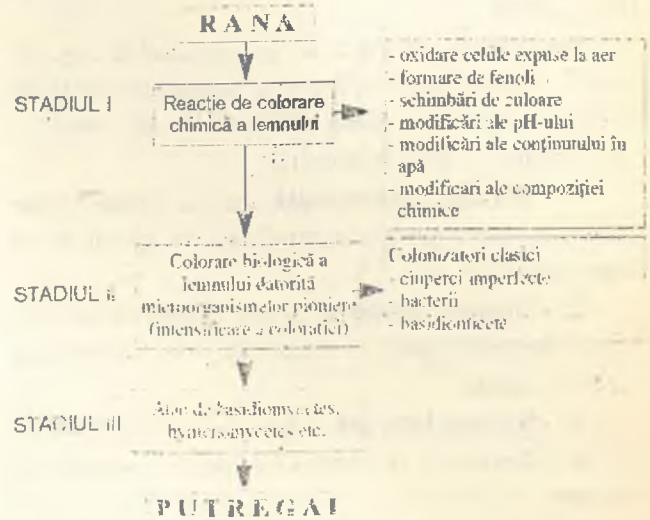 RANA
STADIUL I
Reactie de colorare
chimică a lemnului
- oxidare celule expuse la aer
- formare de fenoli
- schimbări de culoare
- modificări ale pH-ului
- modificări ale conținutului în
apă
- modificari ale compoziției
chimice
STADIUL II
Colorare biologică a
lemnului datorită
microorganismelor pioniere
(intensificare a colorației)
Colonizatori clasici
- ciuperci imperfecte
- bacterii
- basidiomicete
STADIUL III
Atac de basidiomycetes,
hymenomycetes etc.
PUTREGAI